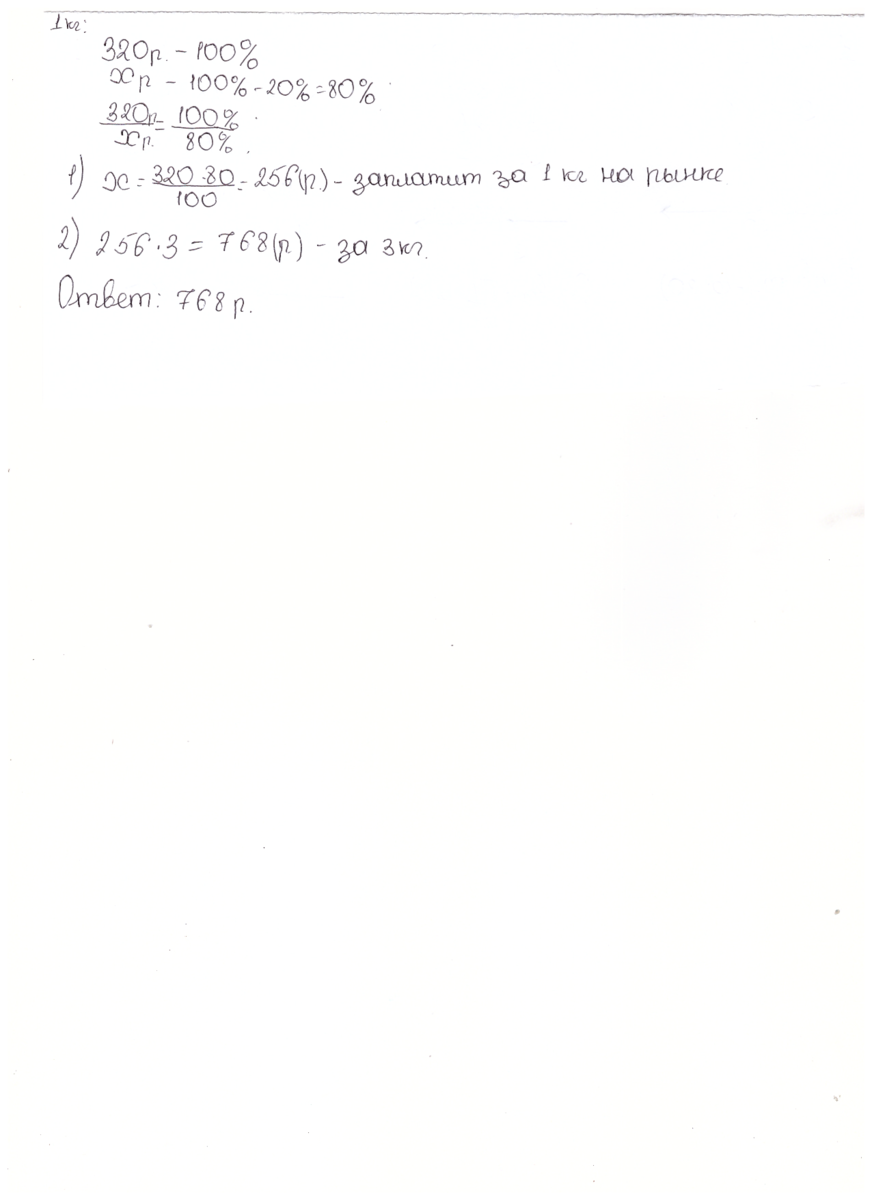 1 кг:
320р. - 100%
x р - 100% - 20% = 80%
320р. / x р. = 100% / 80%
1) x = 320·80 / 100 = 256(р.) - заплатит за 1 кг на рынке
2) 256·3 = 768(р) - за 3кг.
Ответ: 768 р.